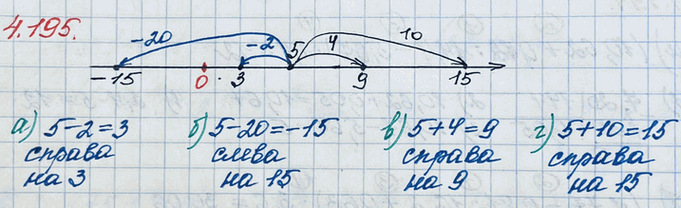 4.195.
-20 -2 5 4 10
-15 0 3 9 15
а) 5-2=3 б) 5-20=-15 в) 5+4=9 г) 5+10=15
справа слева справа справа
на 3 на 15 на 9 на 15